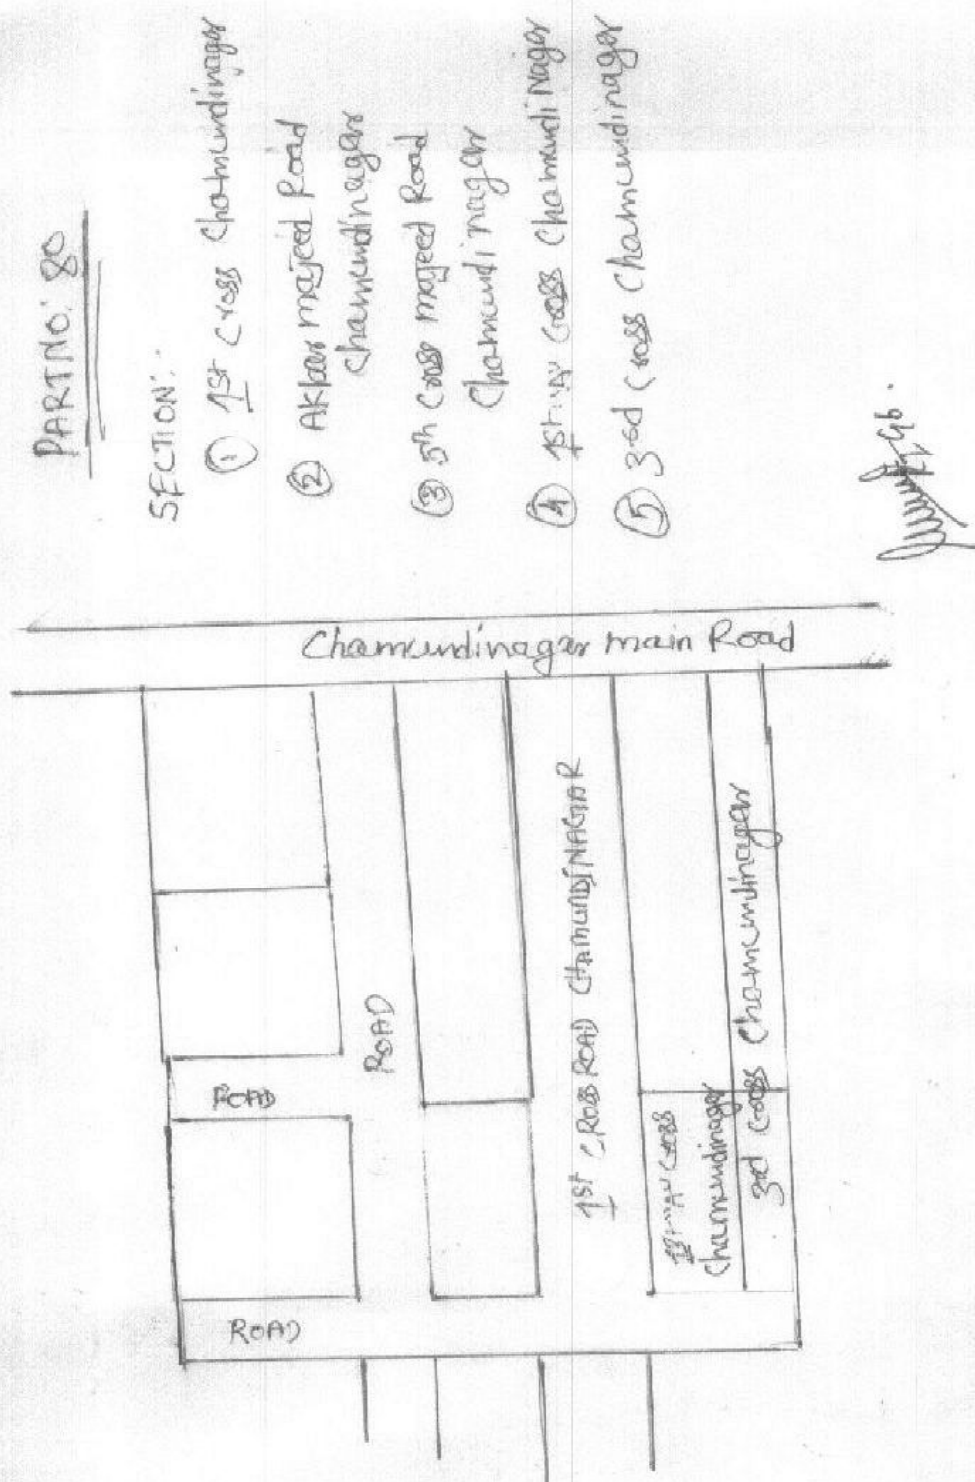 PART NO: 80
SECTION:
① 1st Cross Chamundinagar
② AKbar majeed Road
Chamundinagar
③ 5th Cross majeed Road
Chamundinagar
④ 1st "A" Cross Chamundi Nagar
⑤ 3rd Cross Chamundinagar
Chamundinagar main Road
ROAD
ROAD
ROAD
1st CROSS ROAD CHAMUNDINAGAR
1st "A" Cross
Chamundinagar
3rd Cross Chamundinagar